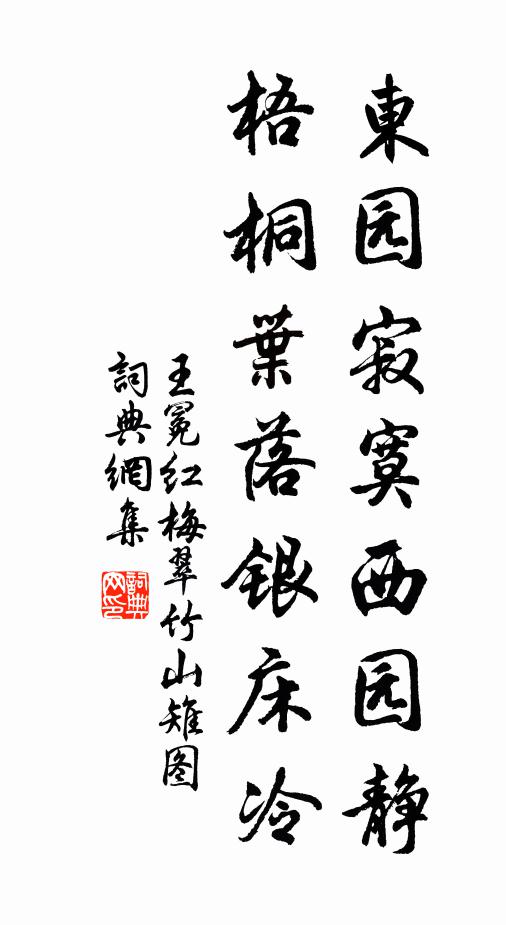 東园寂寞西园静
梧桐葉落银床冷
王冕红梅翠竹山雉图
詞典網集
詞典网印